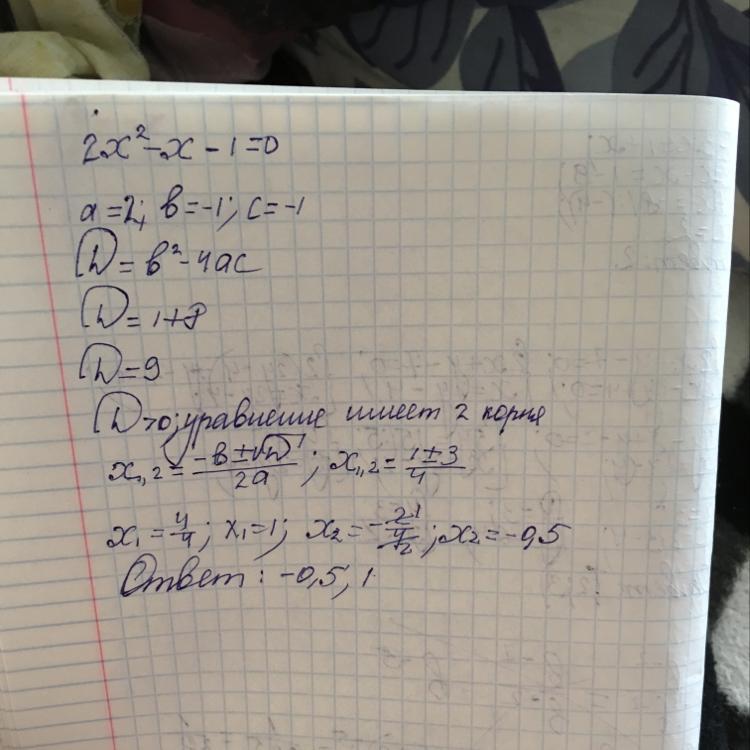 2x²-x-1=0
a=2; в=-1; c=-1
D=в²-4ac
D=1+8
D=9
D>0; уравнение имеет 2 корня
x₁,₂=(-в±√D)/2a; x₁,₂=(1±3)/4
x₁=4/4; x₁=1; x₂=-2/4; x₂=-0,5
Ответ: -0,5; 1